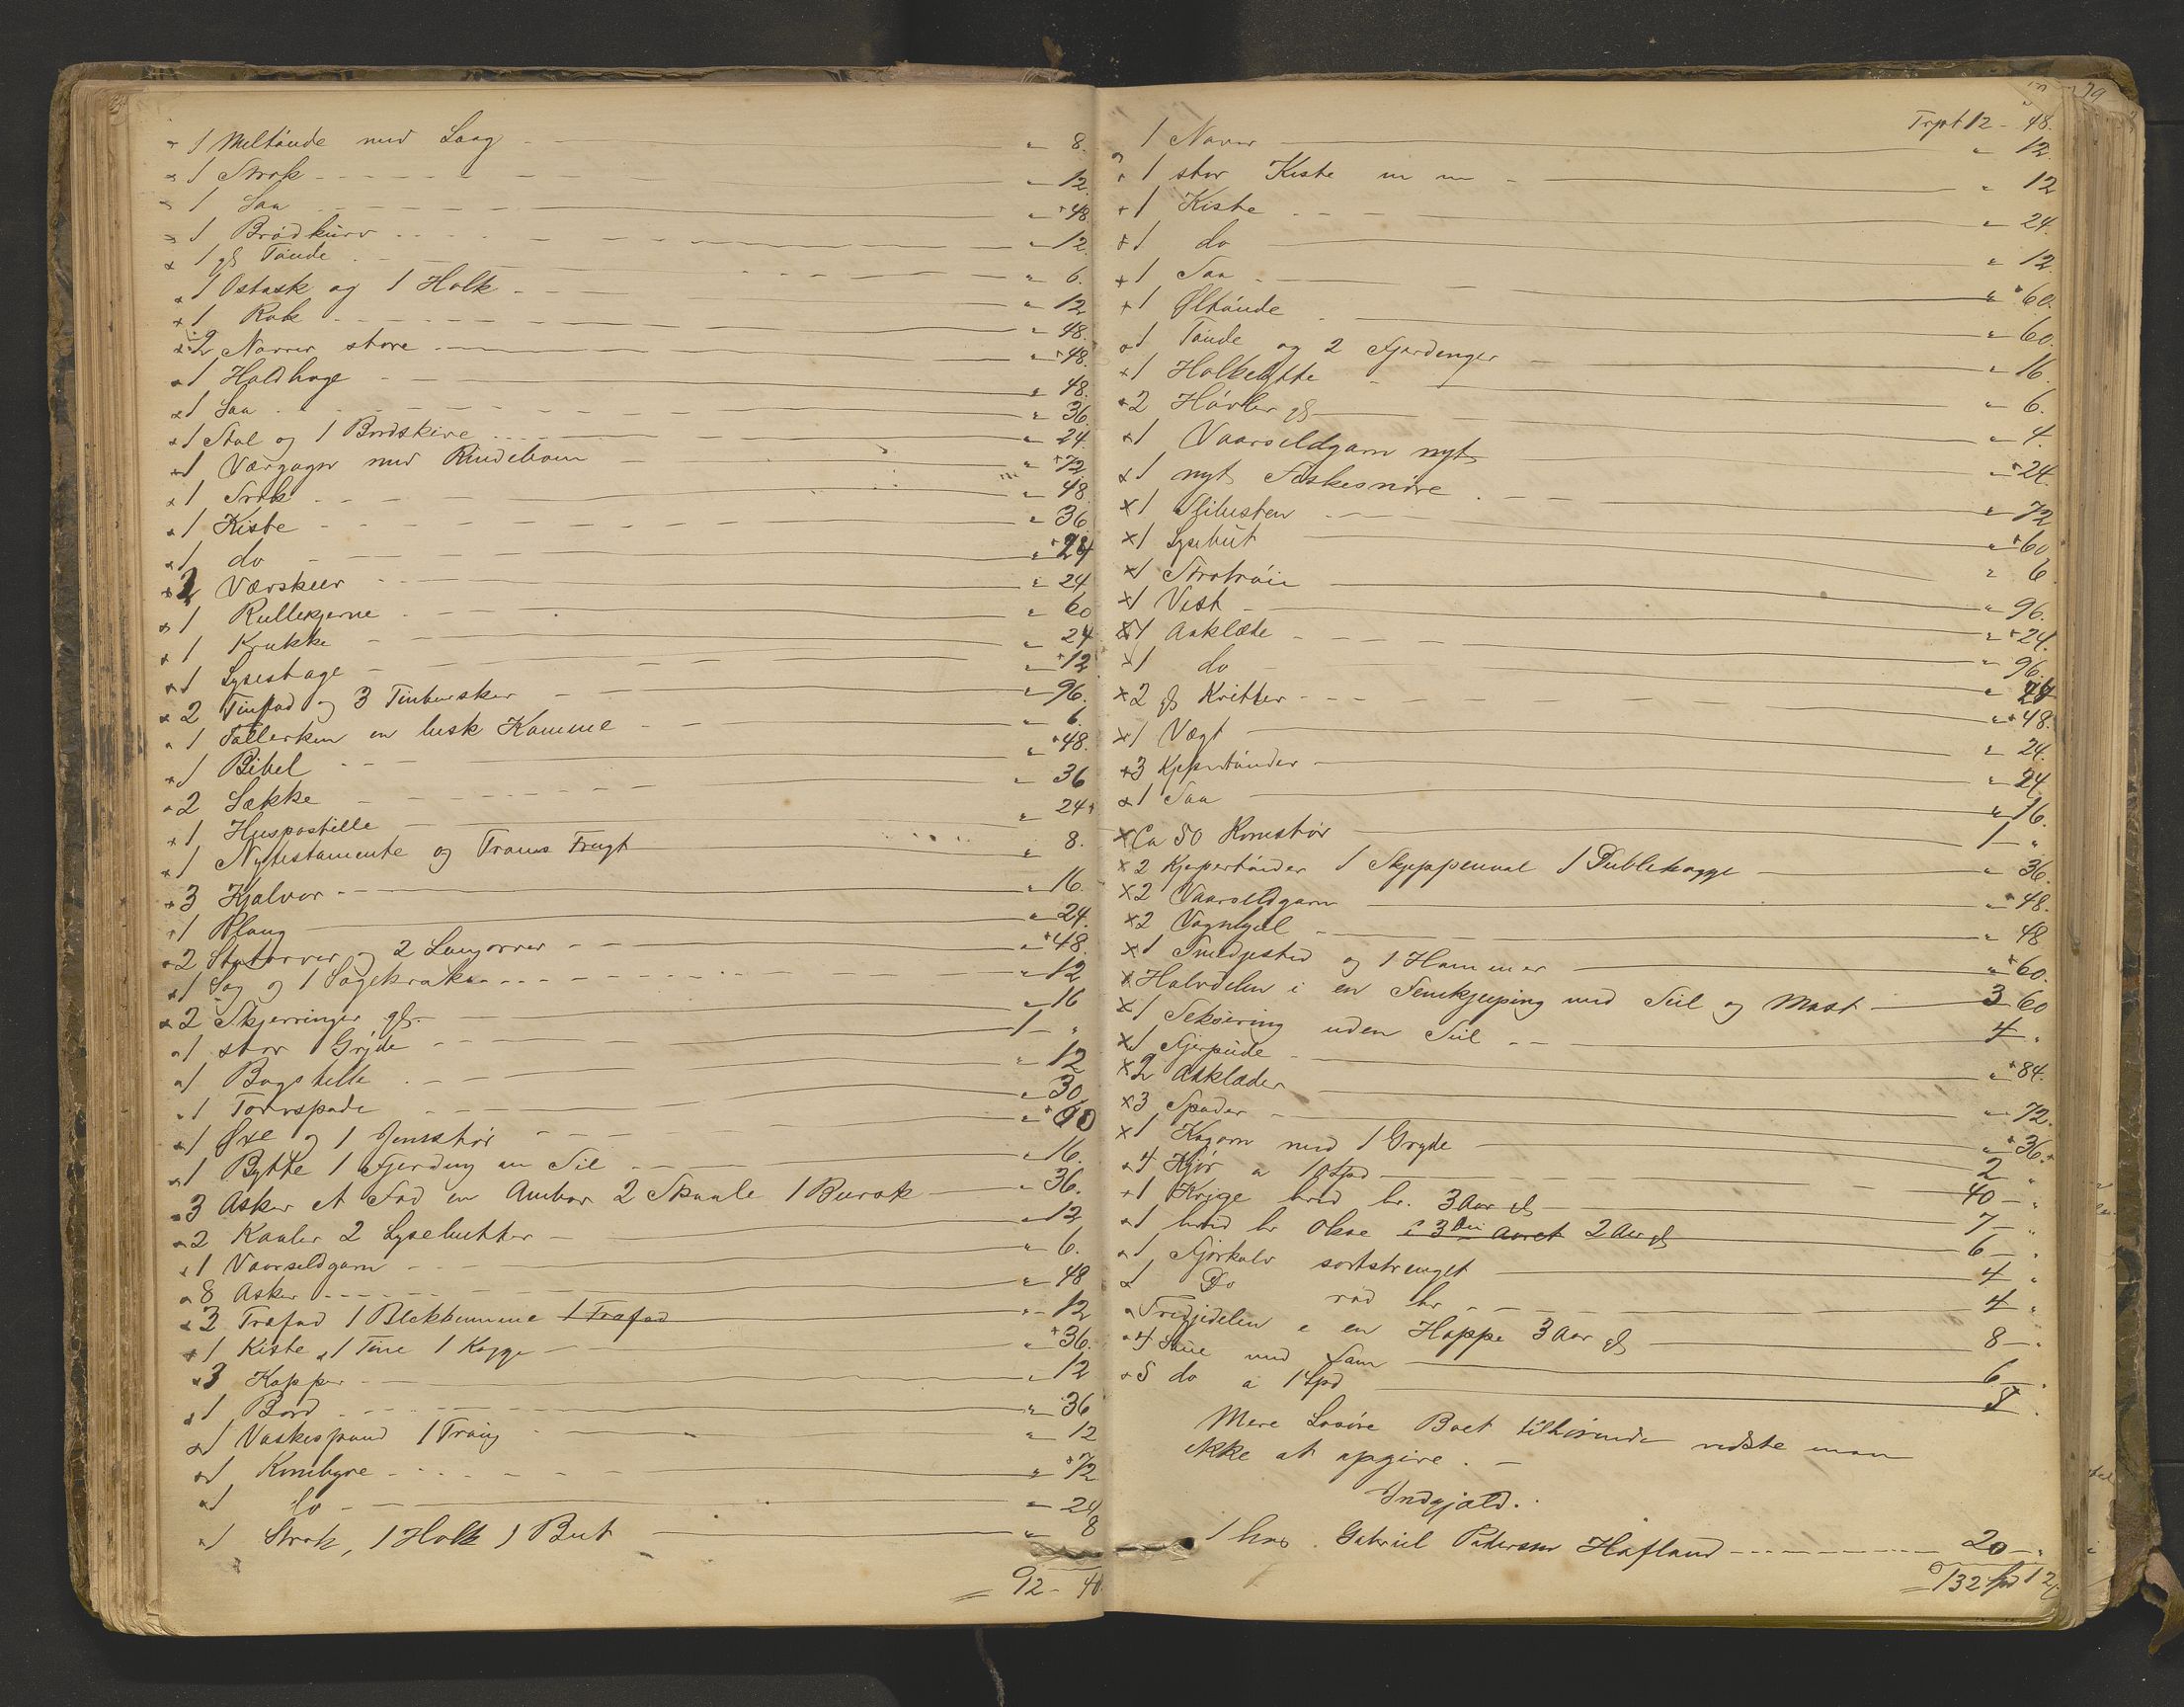 1 Meltønde med Laag — " 8.
1 Strok — " 12.
1 Saa — " 48.
1 Brødkurv — " 12.
1 gl Tønde — " 6.
1 Ostask og 1 Holk — " 12
1 Rok — " 48.
2 Naver store — " 48.
1 Holdhage — " 48.
1 Saa — " 36.
1 Stol og 1 Bordskive — " 24.
1 med — " 72
1 Strok — " 48.
1 Kiste — " 36
1 do — " 24
Værskeer — " 24
1 Rullekjerne — " 60
1 Krukke — " 24
1 Lysestage — " 12
2 Tinfad og 3 — " 96.
1 Tallerken en lusk Kamme — " 6.
1 Bibel — " 48.
2 Sække — " 36
1 Huspostille — " 24
1 Nytestamente og Troens Frugt — " 8.
3 Kjølvor — " 16.
1 Plaug — " 24.
2 og 2 — " 48.
1 Sag og 1 Sagekrakk — " 12
2 Skjerringer gl. — " 16
1 stor Gryde — 1 — "
1 Bagstelle — " 12
1 Torvspade — " 30.
1 Øxe og 1 Jernstør — " 60
1 Bytte 1 Fjerding en Sil — " 16.
3 Asker et Fad en Ambar 2 Skaale 1 Burak — " 36.
2 Kaaler 2 Lysebutter — " 12
1 Vaarsildgarn — " 6.
8 Asker — " 48
Træfad 1 Blekkbomme 1 Træfad — " 12
1 Kiste, 1 Tine 1 Kagge — " 36.
3 Kopper — " 12
1 Bord — " 36
1 Vaskespand 1 Traug — " 12
1 — " 72
1 do — " 24
1 Strok, 1 Holk 1 But — " 8
= 92 - 40.
Trpt 12 - 48.
1 Naver — " 12.
1 stor Kiste — " 12
1 Kiste — " 24.
1 do — " 12
1 Saa — " 60.
1 Øltønde — " 60.
1 Tønde og 2 Fjerdinger — " 16.
1 — " 6.
2 Høvler gl — " 4.
1 Vaarsildgarn nyt — " 24.
1 nyt Fiskesnøre — " 72
1 Slibesten — " 60
1 Lysebut — " 6
1 — " 96.
1 Vest — " 24.
1 Aaklæde — " 96.
1 do — " 24
2 gl Kritter — " 48.
1 Vægt — " 24.
3 — " 24.
1 Saa — " 16.
Ca 50 Kornstør — 1 — "
2 1 Skjeppemaal 1 Dublekagge — " 36.
2 Vaarsildgarn — " 48.
2 Vognhjul — " 48
1 Smedjested og 1 Hammer — " 60.
Halvdelen i en Femkjeiping med Seil og Mast — 3 60
1 Seksering uden Seil — 4 "
1 Fjerpude — " 84.
2 Aaklæder — " 72.
3 Spader — " 36.
1 Kagovn med 1 Gryde — 2 "
4 Kjør a 10 Spd — 40 — "
1 Kvige hvid br. 3 Aar gl — 7 — "
1 hvid br Okse i 3die Aaret 2 Aar gl — 6 — "
1 Fjørkalv sortstrenget — 4 "
Do rød br — 4 "
Tredjedelen i en Hoppe 3 Aar gl — 8 — "
4 Saue med Lam — 6 — "
5 do a 1 Spd — 5
Mere Løsøre Boet tilhørende vidste man
ikke at opgive. —
Indgjæld.
1 hos Gabriel Pedersen Hafland — 20 — "
= 132 Spd 12